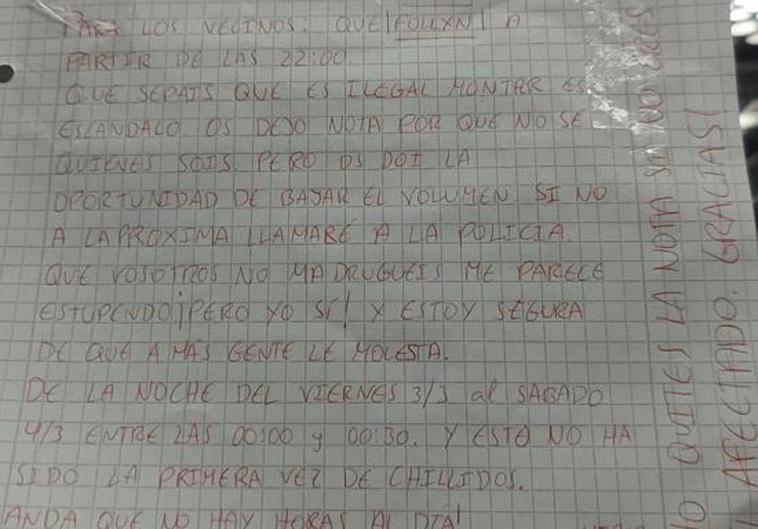 PARA LOS VECINOS: QUE FOLLXN A
PARTIR DE LAS 22:00
QUE SEPAIS QUE ES ILEGAL MONTAR ES
ESCANDALO OS DEJO NOTA POR QUE NO SE
QUIENES SOIS. PERO OS DOI LA
OPORTUNIDAD DE BAJAR EL VOLUMEN SI NO
A LA PROXIMA LLAMARÉ A LA POLICIA.
QUE VOSOTROS NO MADRUGUEIS ME PARECE
ESTUPENDO ¡PERO YO SÍ! Y ESTOY SEGURA
DE QUE A MAS GENTE LE MOLESTA.
DE LA NOCHE DEL VIERNES 3/3 al SABADO
4/3 ENTRE LAS 00:00 y 00:30. Y ESTO NO HA
SIDO LA PRIMERA VEZ DE CHILLIDOS.
ANDA QUE NO HAY HORAS AL DIA!
NO QUITES LA NOTA SI NO ERES
AFECTADO. GRACIAS!